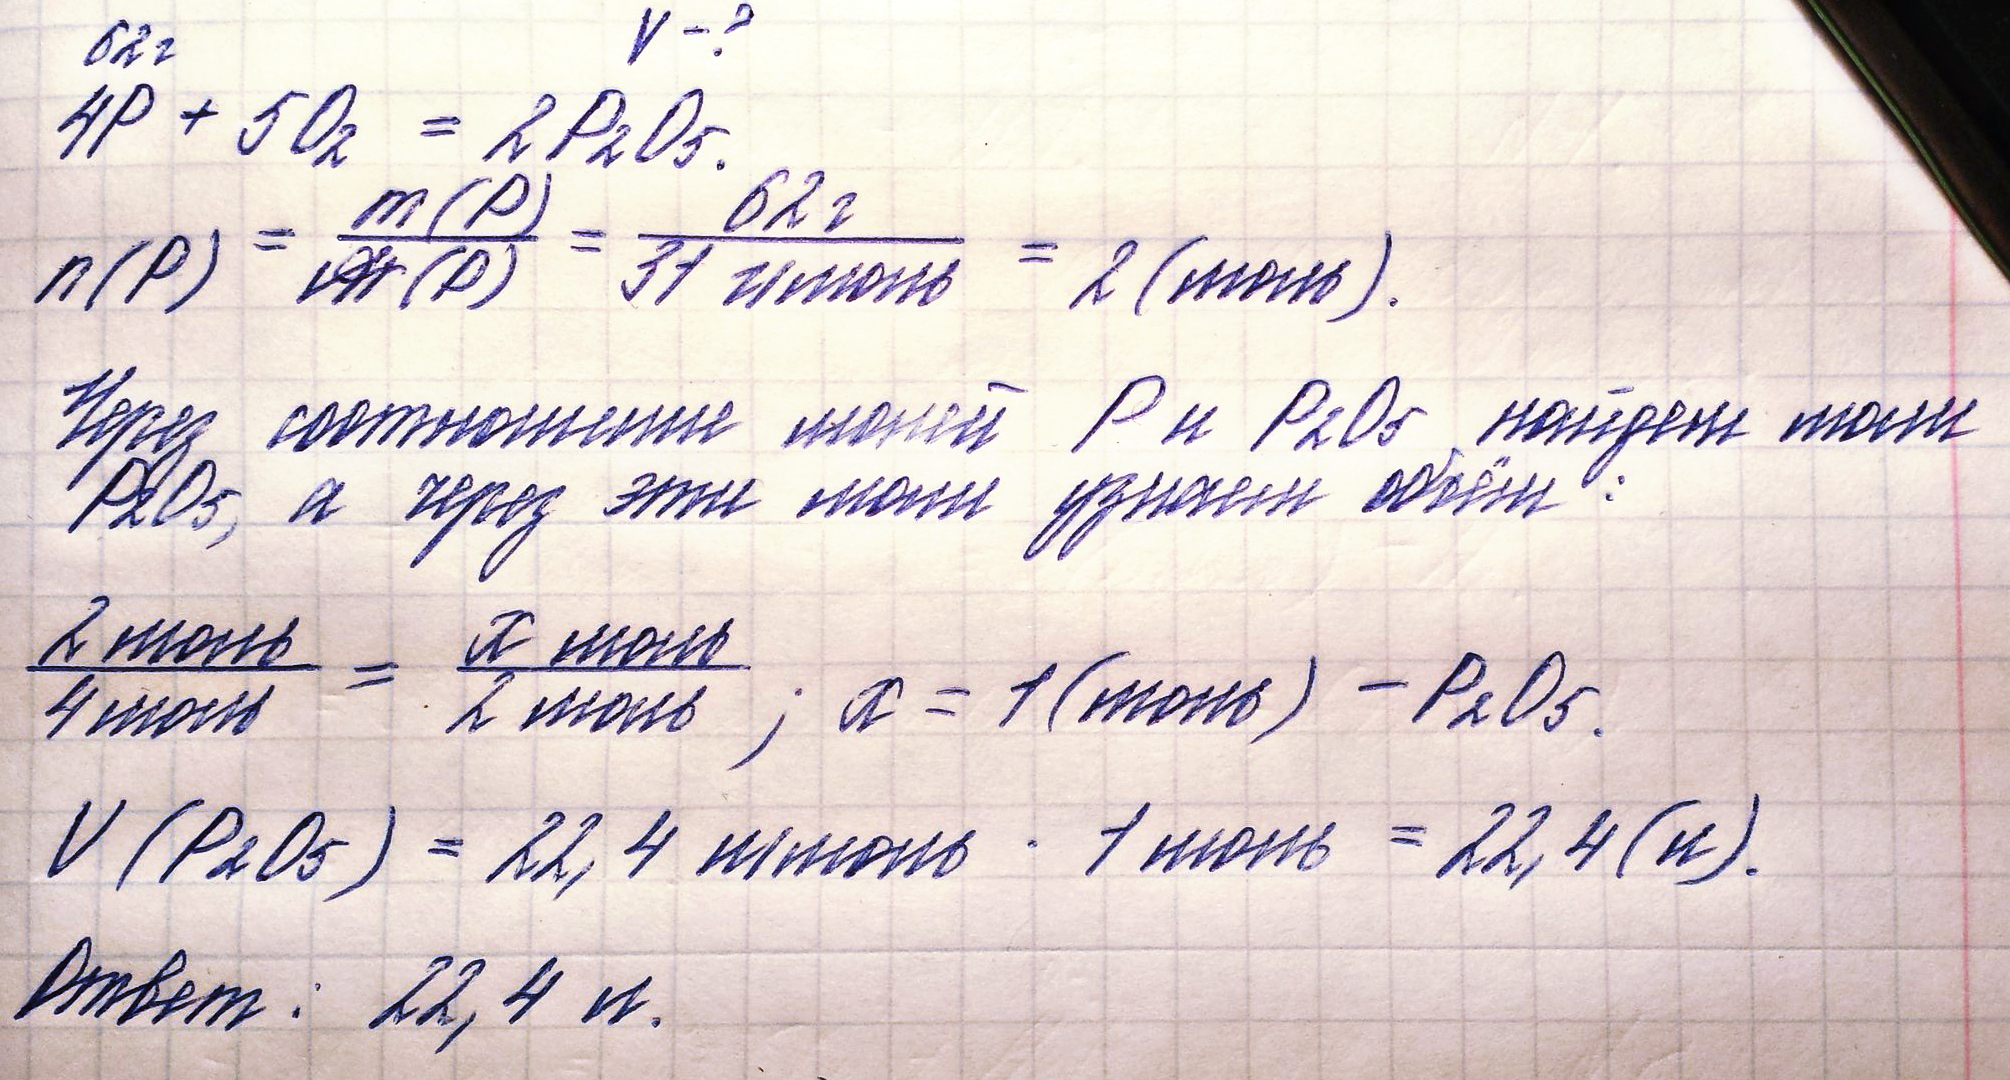 62г V-?
4P + 5O₂ = 2P₂O₅.
n(P) = m(P)/M(P) = 62г/31 г/моль = 2 (моль).
Через соотношение молей P и P₂O₅ найдем моли
P₂O₅, а через эти моли узнаем объём:
2 моль/4 моль = x моль/2 моль ; x = 1 (моль) - P₂O₅.
V (P₂O₅) = 22,4 л/моль · 1 моль = 22,4 (л).
Ответ: 22,4 л.